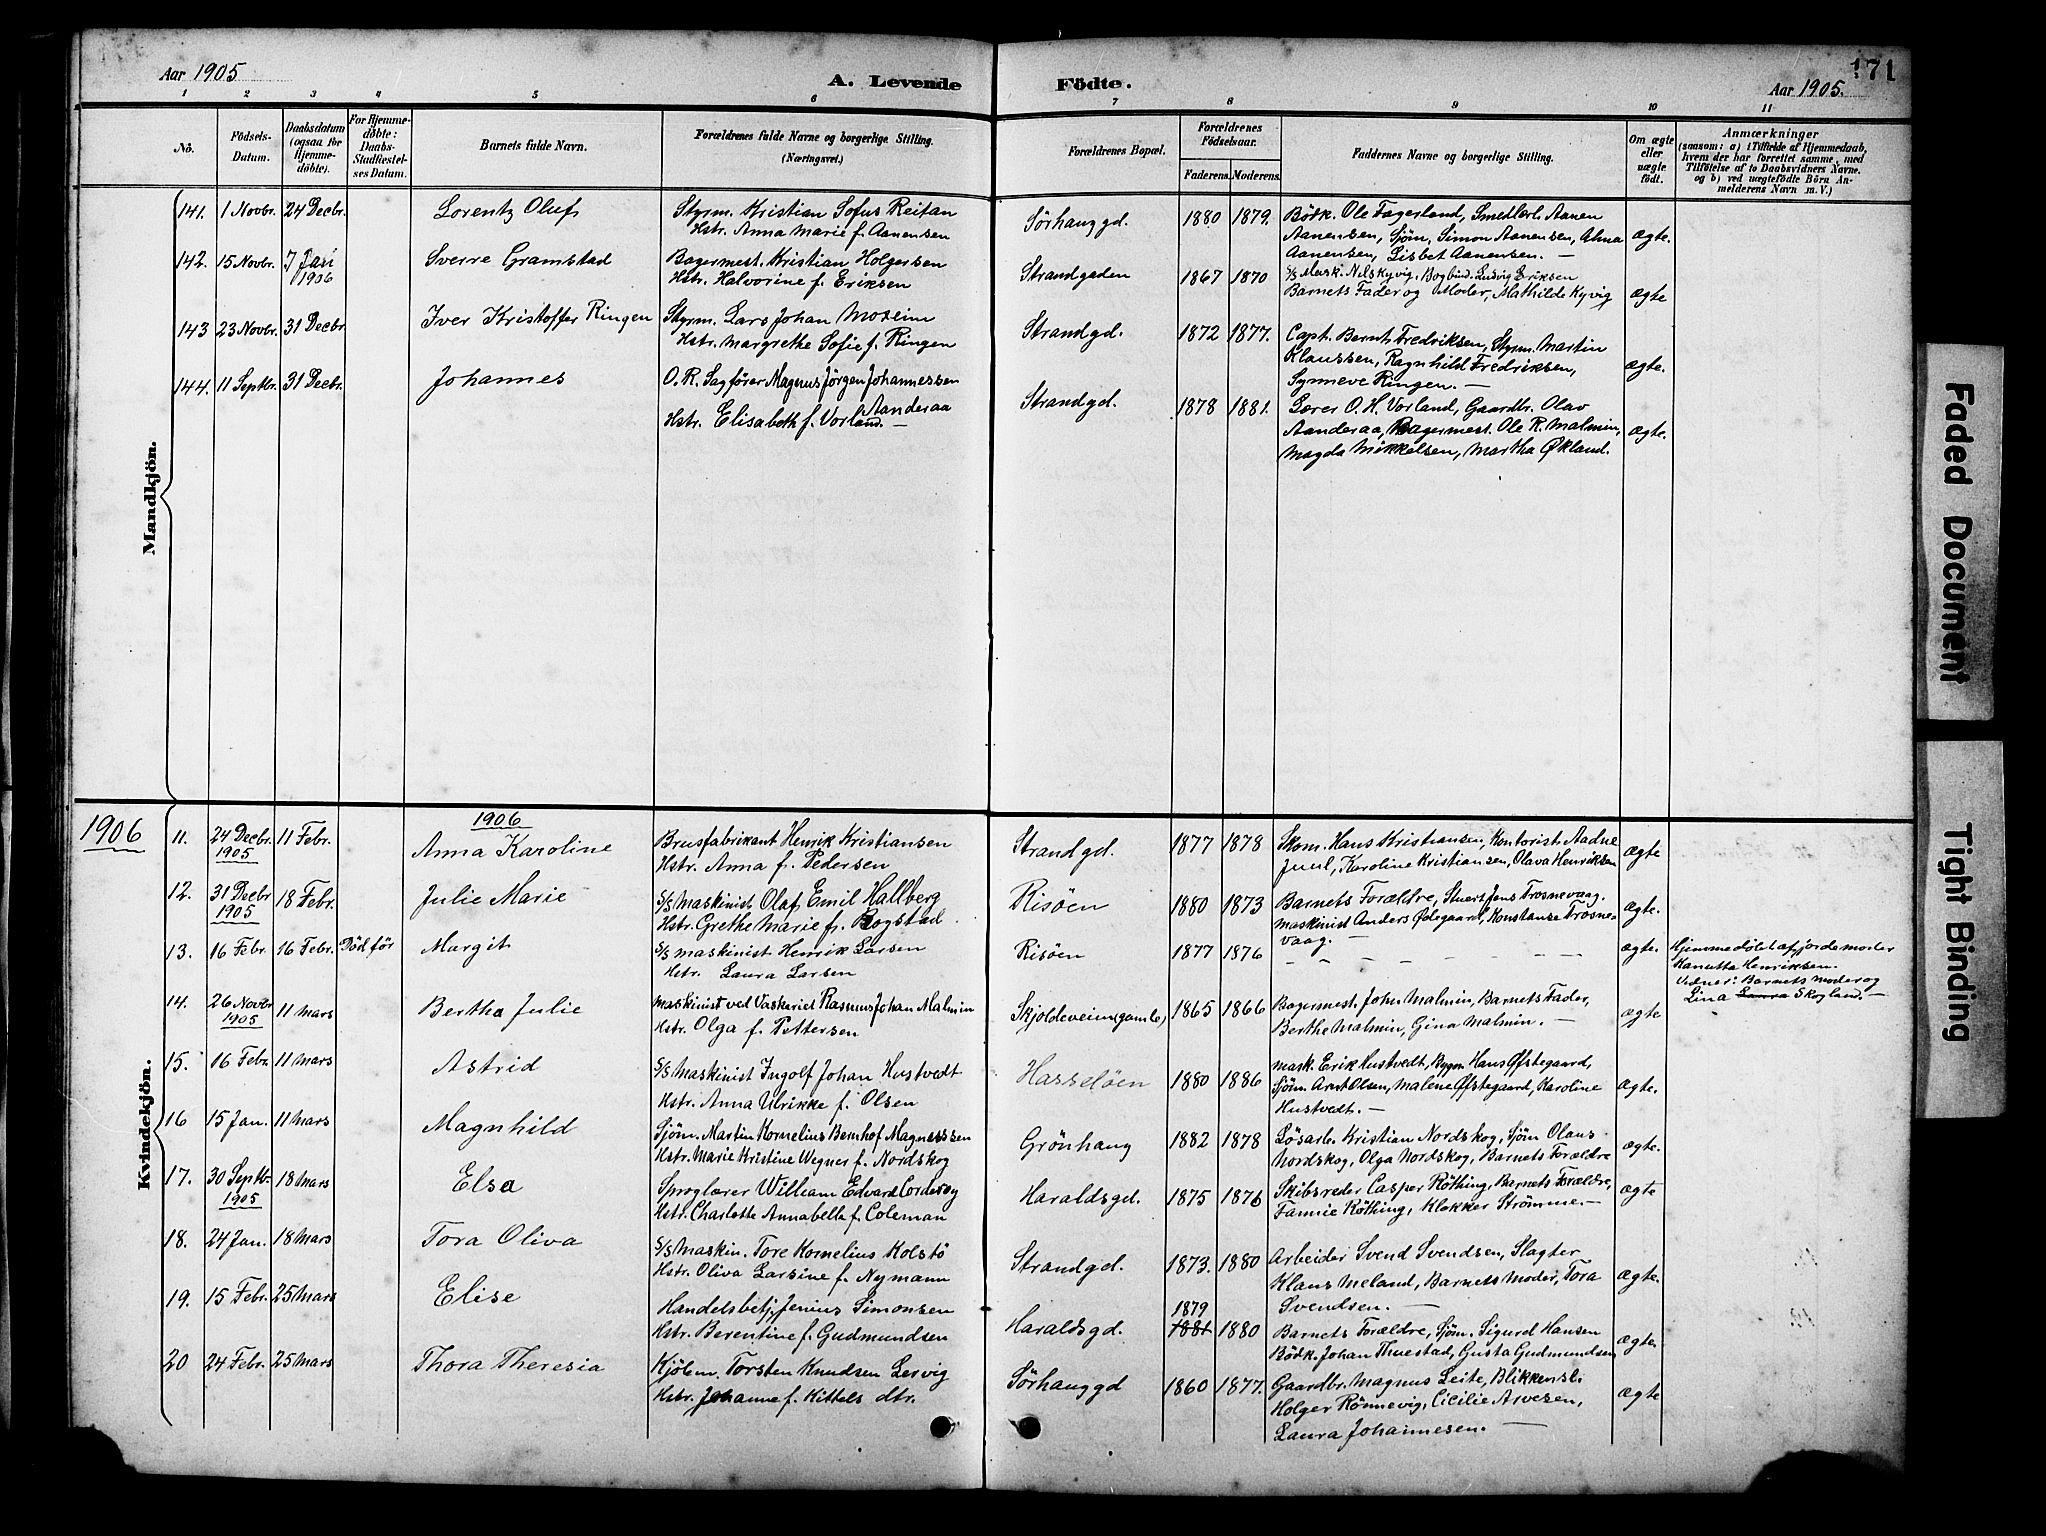 Aar 1905
A. Levende Födte.
Aar 1905.
171
1 2 3 4 5 6 7 8 9 10 11
No.
Födsels-Datum.
Daabsdatum (ogsaa for Hjemme-döbte).
For Hjemme-döbte: Daabs-Stadfæstel-ses Datum.
Barnets fulde Navn.
Forældrenes fulde Navne og borgerlige Stilling. (Næringsvei.)
Forældrenes Bopæl.
Forældrenes Födselsaar.
Faderens. Moderens.
Faddernes Navne og borgerlige Stilling.
Om ægte eller uægte födt.
Anmærkninger
(saasom: a) i Tilfælde af Hjemmedaab, hvem der har forrettet samme, med Tilföielse af to Daabsvidners Navne, og b) ved uægtefödte Börn An-melderens Navn m. V.)
Mandkjön.
141. 1 Novbr. 24 Decbr. Lorentz Oluf
Styrm. Kristian Sofus Reitan
Hstr. Anna Marie f. Aanensen
Sørhauggd. 1880 1879.
Bödk. Ole Fagerland, Smedlerl. Aanen
Aanensen, Sjöm. Simon Aanensen, Alma
Aanensen, Lisbet Aanensen. —
ægte.
142. 15 Novbr. 7 Jan 1906 Sverre Gramstad
Bagermest. Kristian Holgersen
Hstr. Halvorine f. Eriksen
Strandgaden 1867 1870
S/S Mask. Nils Kyvig, Bogbind. Ludvig Eriksen
Barnets Fader og Moder, Mathilde Kyvig
ægte
143 23 Novbr. 31 Decbr Iver Kristoffer Ringen
Styrm. Lars Johan Moseim
Hstr. Margrethe Sofie f. Ringen
Strandgd. 1872 1877.
Capt. Bernt Fredriksen, Styrm. Martin
Klaussen, Ragnhild Fredriksen,
Synneve Ringen. —
ægte.
144. 11 Septbr. 31 Decbr. Johannes
O. R. Sagfører Magnus Jørgen Johannessen
Aanderaa
Hstr. Elisabeth f. Vorland. —
Strandgd. 1878 1881.
Lærer O. H. Vorland, Gaardbr. Olav
Aanderaa, Bagermest. Ole R. Malmin,
Magda Mikkelsen, Martha Økland.
ægte.
Kvindekjön.
1906
1906
11. 24 Decbr. 1905 11 Febr. Anna Karoline
Brusfabrikant Henrik Kristiansen
Hstr. Anna f. Pedersen
Strandgd. 1877 1878
Skom. Hans Kristiansen, Kontorist Aadne
Juul, Karoline Kristiansen, Olava Henriksen
ægte
12. 31 Decbr 1905 18 Febr. Julie Marie
S/S Maskinist Olaf Emil Hallberg
Hstr. Grethe Marie f. Bogstad
Risöen 1880 1873
Barnets Forældre, Stuert Jens Trosnevaag.
Maskinist Anders Ødegaard, Konstanse Trosne-
vaag. —
ægte.
13. 16 Febr. 16 Febr. Död för Margit
S/S Maskinist Henrik Larsen
Hstr. Laura Larsen
Risöen 1877 1876
– – – – – – – –
ægte.
Hjemmedøbt af Jordemoder
Hanetta Henriksen.
Vidner: Barnets Moder og
Lina Laura Skogland. —
14. 26 Novbr 1905 11 Mars Bertha Julie
Maskinist ved Vaskeriet Rasmus Johan Malmin
Hstr. Olga f. Pettersen
Skjoldeveien (gamle) 1865 1866
Bagermest. John Malmin, Barnets Fader,
Berthe Malmin, Gina Malmin. —
ægte
15. 16 Febr. 11 Mars Astrid
S/S Maskinist Ingolf Johan Hustvedt
Hstr. Anna Ulrikke f. Olsen
Hasseløen 1880 1886
Mask. Erik Hustvedt, Bygm. Hans Øfstegaard,
Sjöm. Arnt Olsen, Malene Øfstegaard, Karoline
Hustvedt. —
ægte.
16 15 Jan. 11 Mars Magnhild
Sjöm. Martin Kornelius Bernhof Magnessen
Hstr. Marie Kristine Wegner f. Nordskog
Grönhaug 1882 1878
Løsarb. Kristian Nordskog, Sjöm. Olaus
Nordskog, Olga Nordskog, Barnets Forældre
ægte.
17. 30 Septbr. 1905 18 Mars Elsa
Sproglærer William Edvard Corderoy
Hstr. Charlotte Annabella f. Coleman
Haraldsgd. 1875 1876
Skibsreder Casper Röthing, Barnets Forældre,
Fannie Röthing, Klokker Strömme. —
ægte
18. 24 Jan. 18 Mars Tora Oliva
S/S Maskin. Tore Kornelius Kolstö
Hstr. Oliva Larsine f. Nymann
Strandgd. 1873. 1880
Arbeider Svend Svendsen, Slagter
Klaus Meland, Barnets Moder, Tora
Svendsen. —
ægte.
19. 15 Febr. 25 Mars Elise
Handelsbetj. Jenius Simonsen
Hstr. Berentine f. Gudmundsen
Haraldsgd. 1879 1881 1880
Barnets Forældre, Sjöm. Sigurd Hansen
Bödk. Johan Thuestad, Gusta Gudmundsen
ægte.
20 24 Febr. 25 Mars Thora Theresia
Kjölem. Torsten Knudsen Lervig
Hstr. Johanne f. Kittels dtr.
Sørhauggd 1860 1877.
Gaardbr. Magnus Leite, Blikkensl.
Holger Rönnevig, Cicilie Arvesen,
Laura Johannesen. —
ægte
Faded Document
Tight Binding